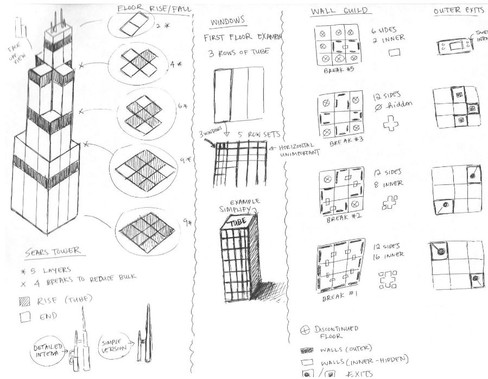 FLOOR RISE/FALL
2*
4*
6*
9*
9*
SEARS TOWER
* 5 LAYERS
x 4 BREAKS TO REDUCE BULK
RISE (TUBE)
END
DETAILED
SIMPLE
VERSION
WINDOWS
FIRST FLOOR EXAMPLE
3 ROWS OF TUBE
3 WINDOWS
5 ROW SETS
HORIZONTAL
UNIMPORTANT
EXAMPLE
SIMPLIFY
TUBE
WALL GUILD
6 SIDES
2 INNER
BREAK #5
12 SIDES
hidden
BREAK #3
12 SIDES
8 INNER
BREAK #2
12 SIDES
16 INNER
BREAK #1
DISCONTINUED
FLOOR
WALLS (OUTER)
WALLS (INNER-HIDDEN)
/ EXITS
OUTER EXITS